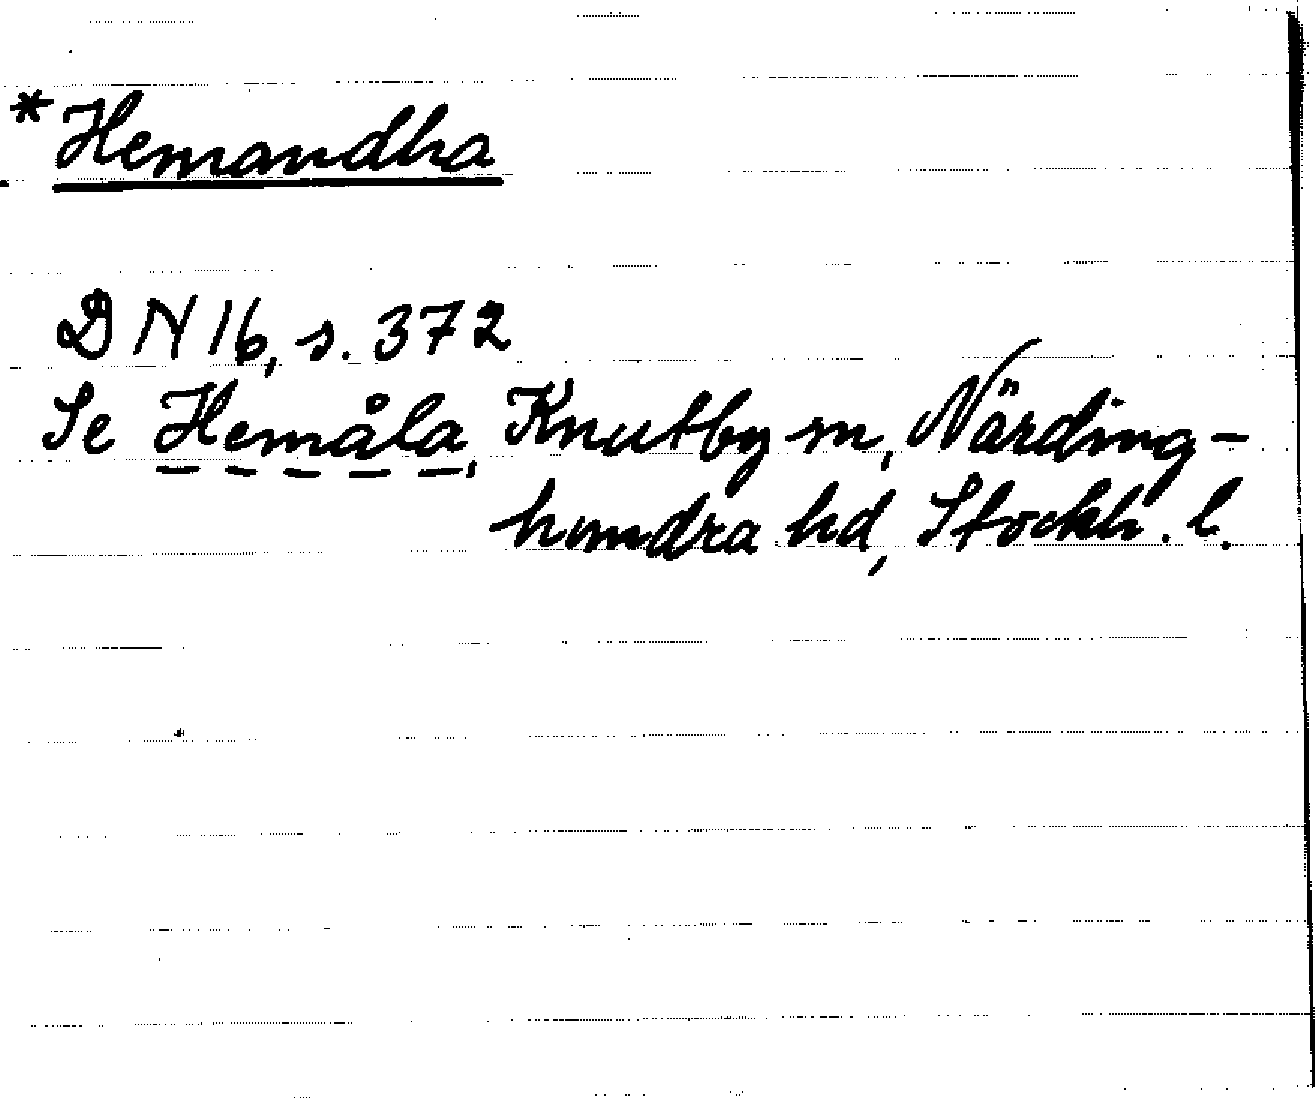 *Hemandha
DN 16, s. 372
Se Hemåla, Knutby sn, Närding-
hundra hd, Stockh. l.